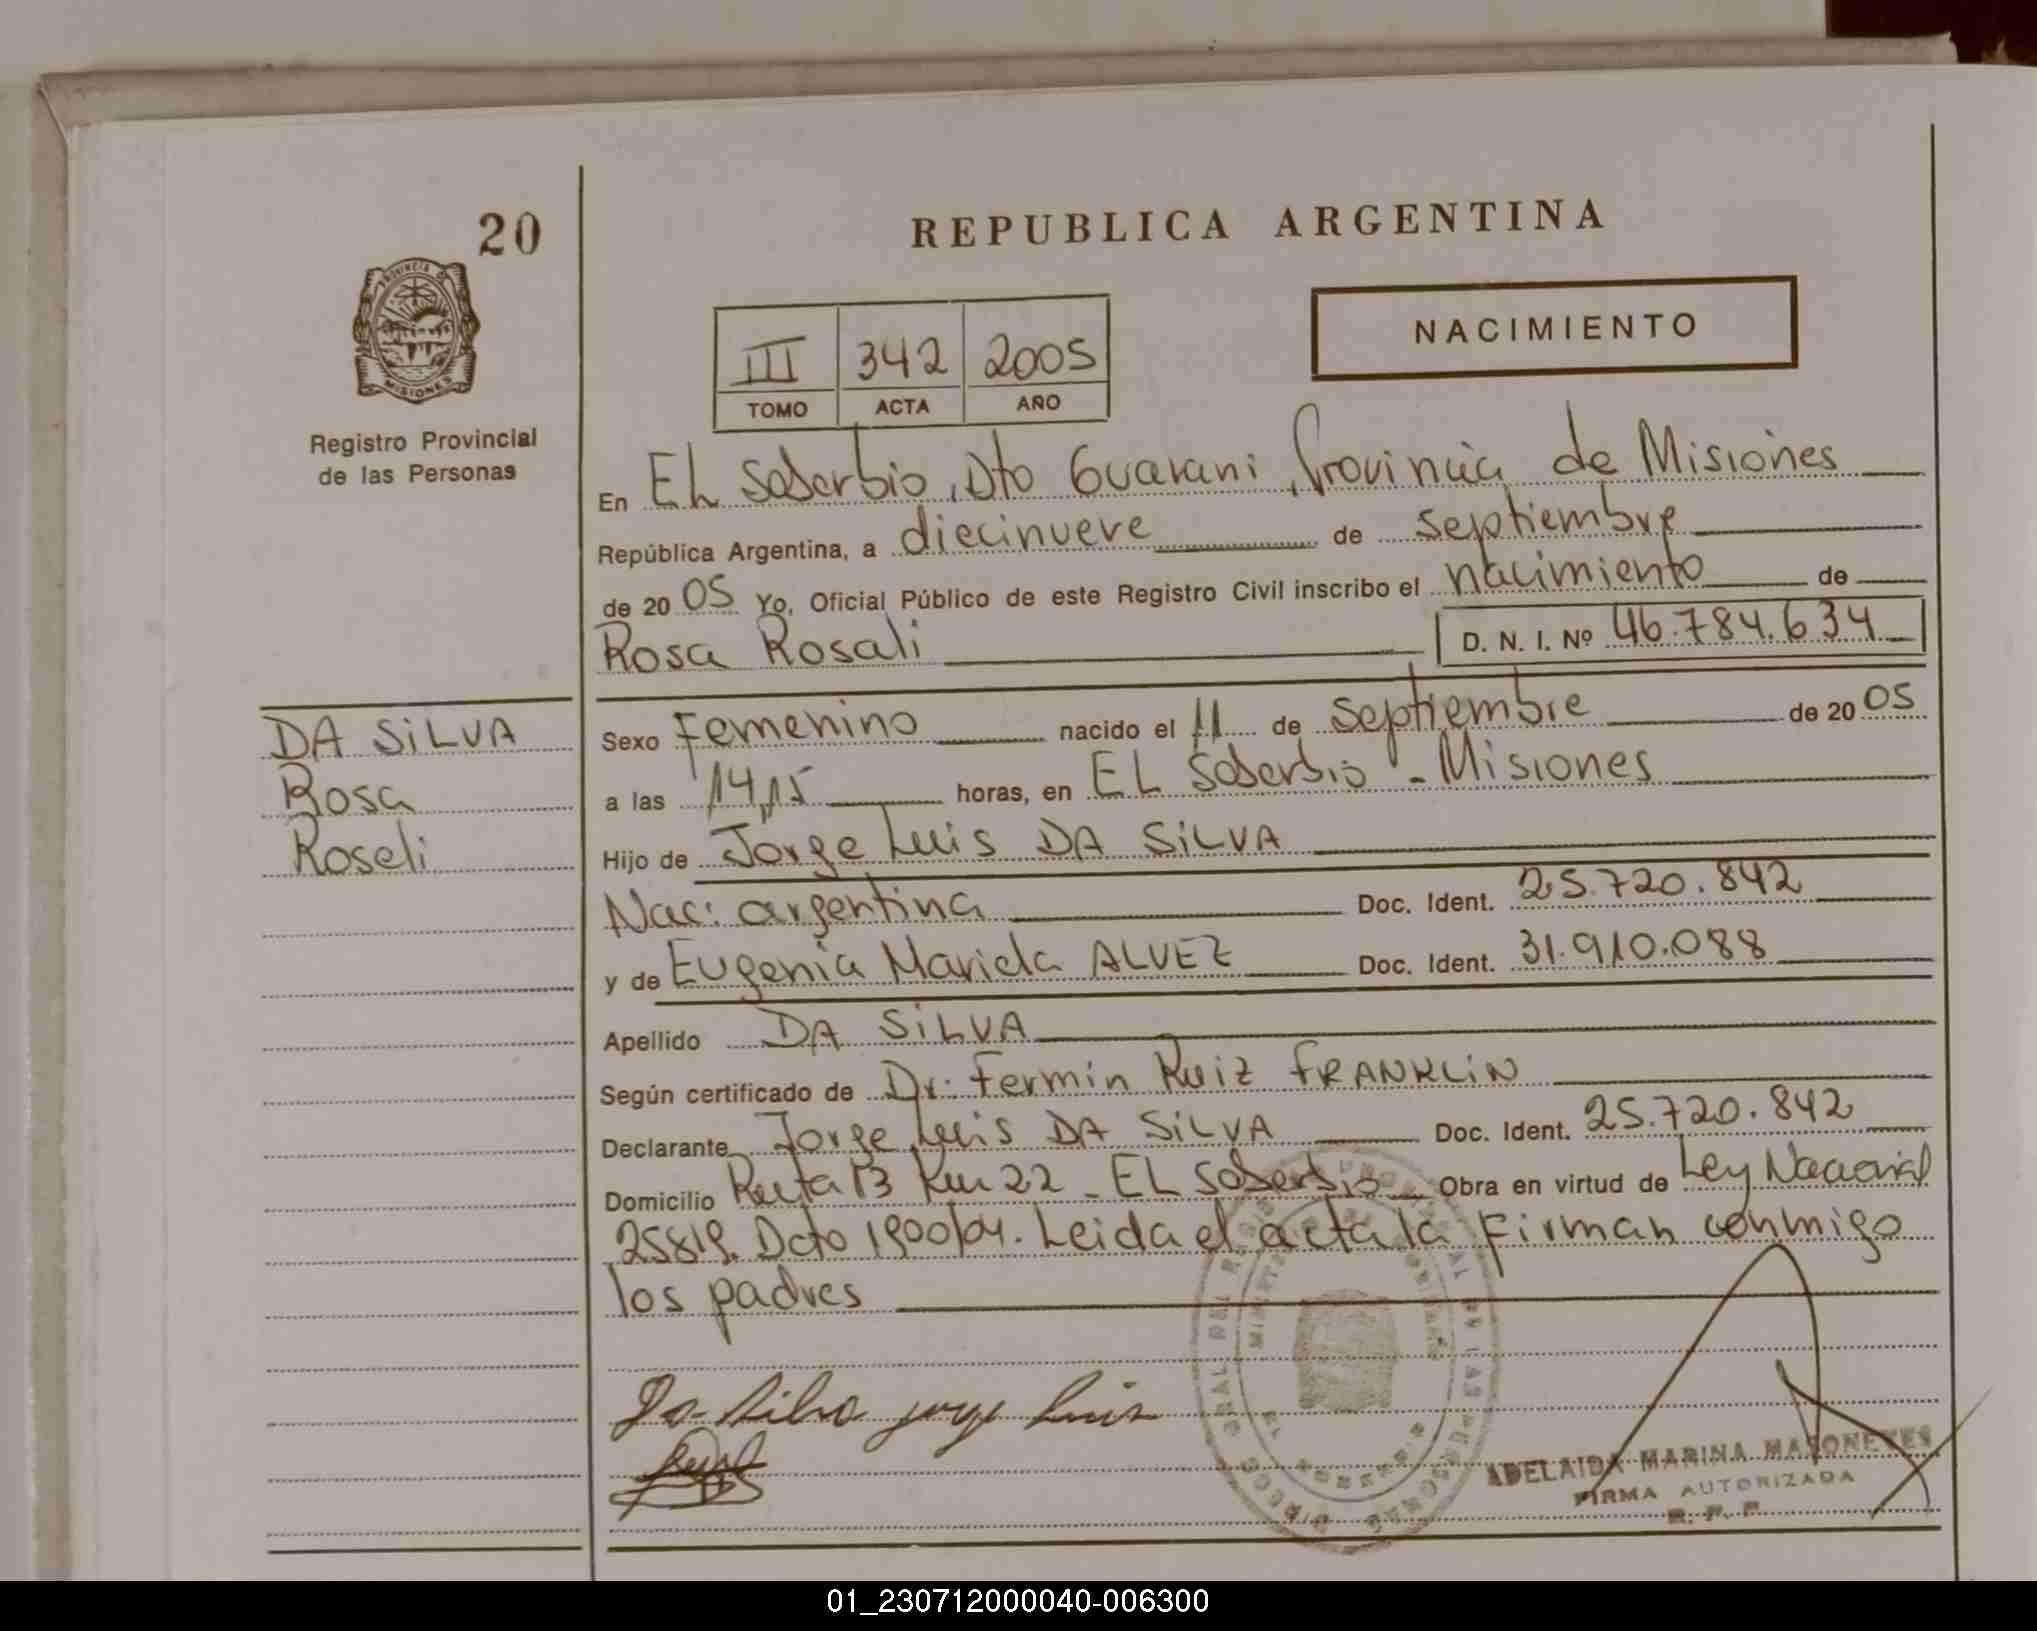 20
REPUBLICA ARGENTINA
PROVINCIA DE
MISIONES
Registro Provincial
de las Personas
NACIMIENTO
III 342 2005
TOMO ACTA AÑO
En EL Soberbio, Dto Guarani, Provincia de Misiones
República Argentina, a diecinueve de septiembre
de 20 05 Yo, Oficial Público de este Registro Civil inscribo el nacimiento de
Rosa Rosali D. N. I. Nº 46.784.634
DA SiLVA
Rosa
Roseli
Sexo Femenino nacido el 11 de septiembre de 20 05
a las 14,15 horas, en EL Soberbio - Misiones
Hijo de Jorge Luis DA SiLVA
Nac: argentina Doc. Ident. 25.720.842
y de Eugenia Mariela ALVEZ Doc. Ident. 31.910.088
Apellido DA SiLVA
Según certificado de Dr: Fermín Ruiz FRANKLiN
Declarante Jorge Luis DA SiLVA Doc. Ident. 25.720.842
Domicilio Ruta 13 Km 22 - EL Soberbio Obra en virtud de Ley Nacional
25819. Dcto 1900/04. Leida el acta la firman conmigo
los padres
Da Silva jorge Luis
ADELAIDA MARINA MASONEYES
FIRMA AUTORIZADA
R. P. P.
01_230712000040-006300